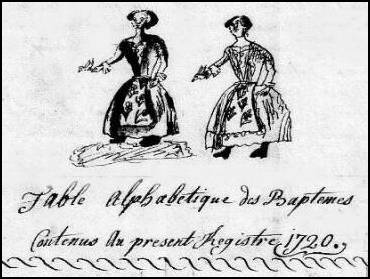 Table Alphabetique des Baptemes
Contenus Au present Registre 1720.